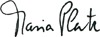 Maria Plate